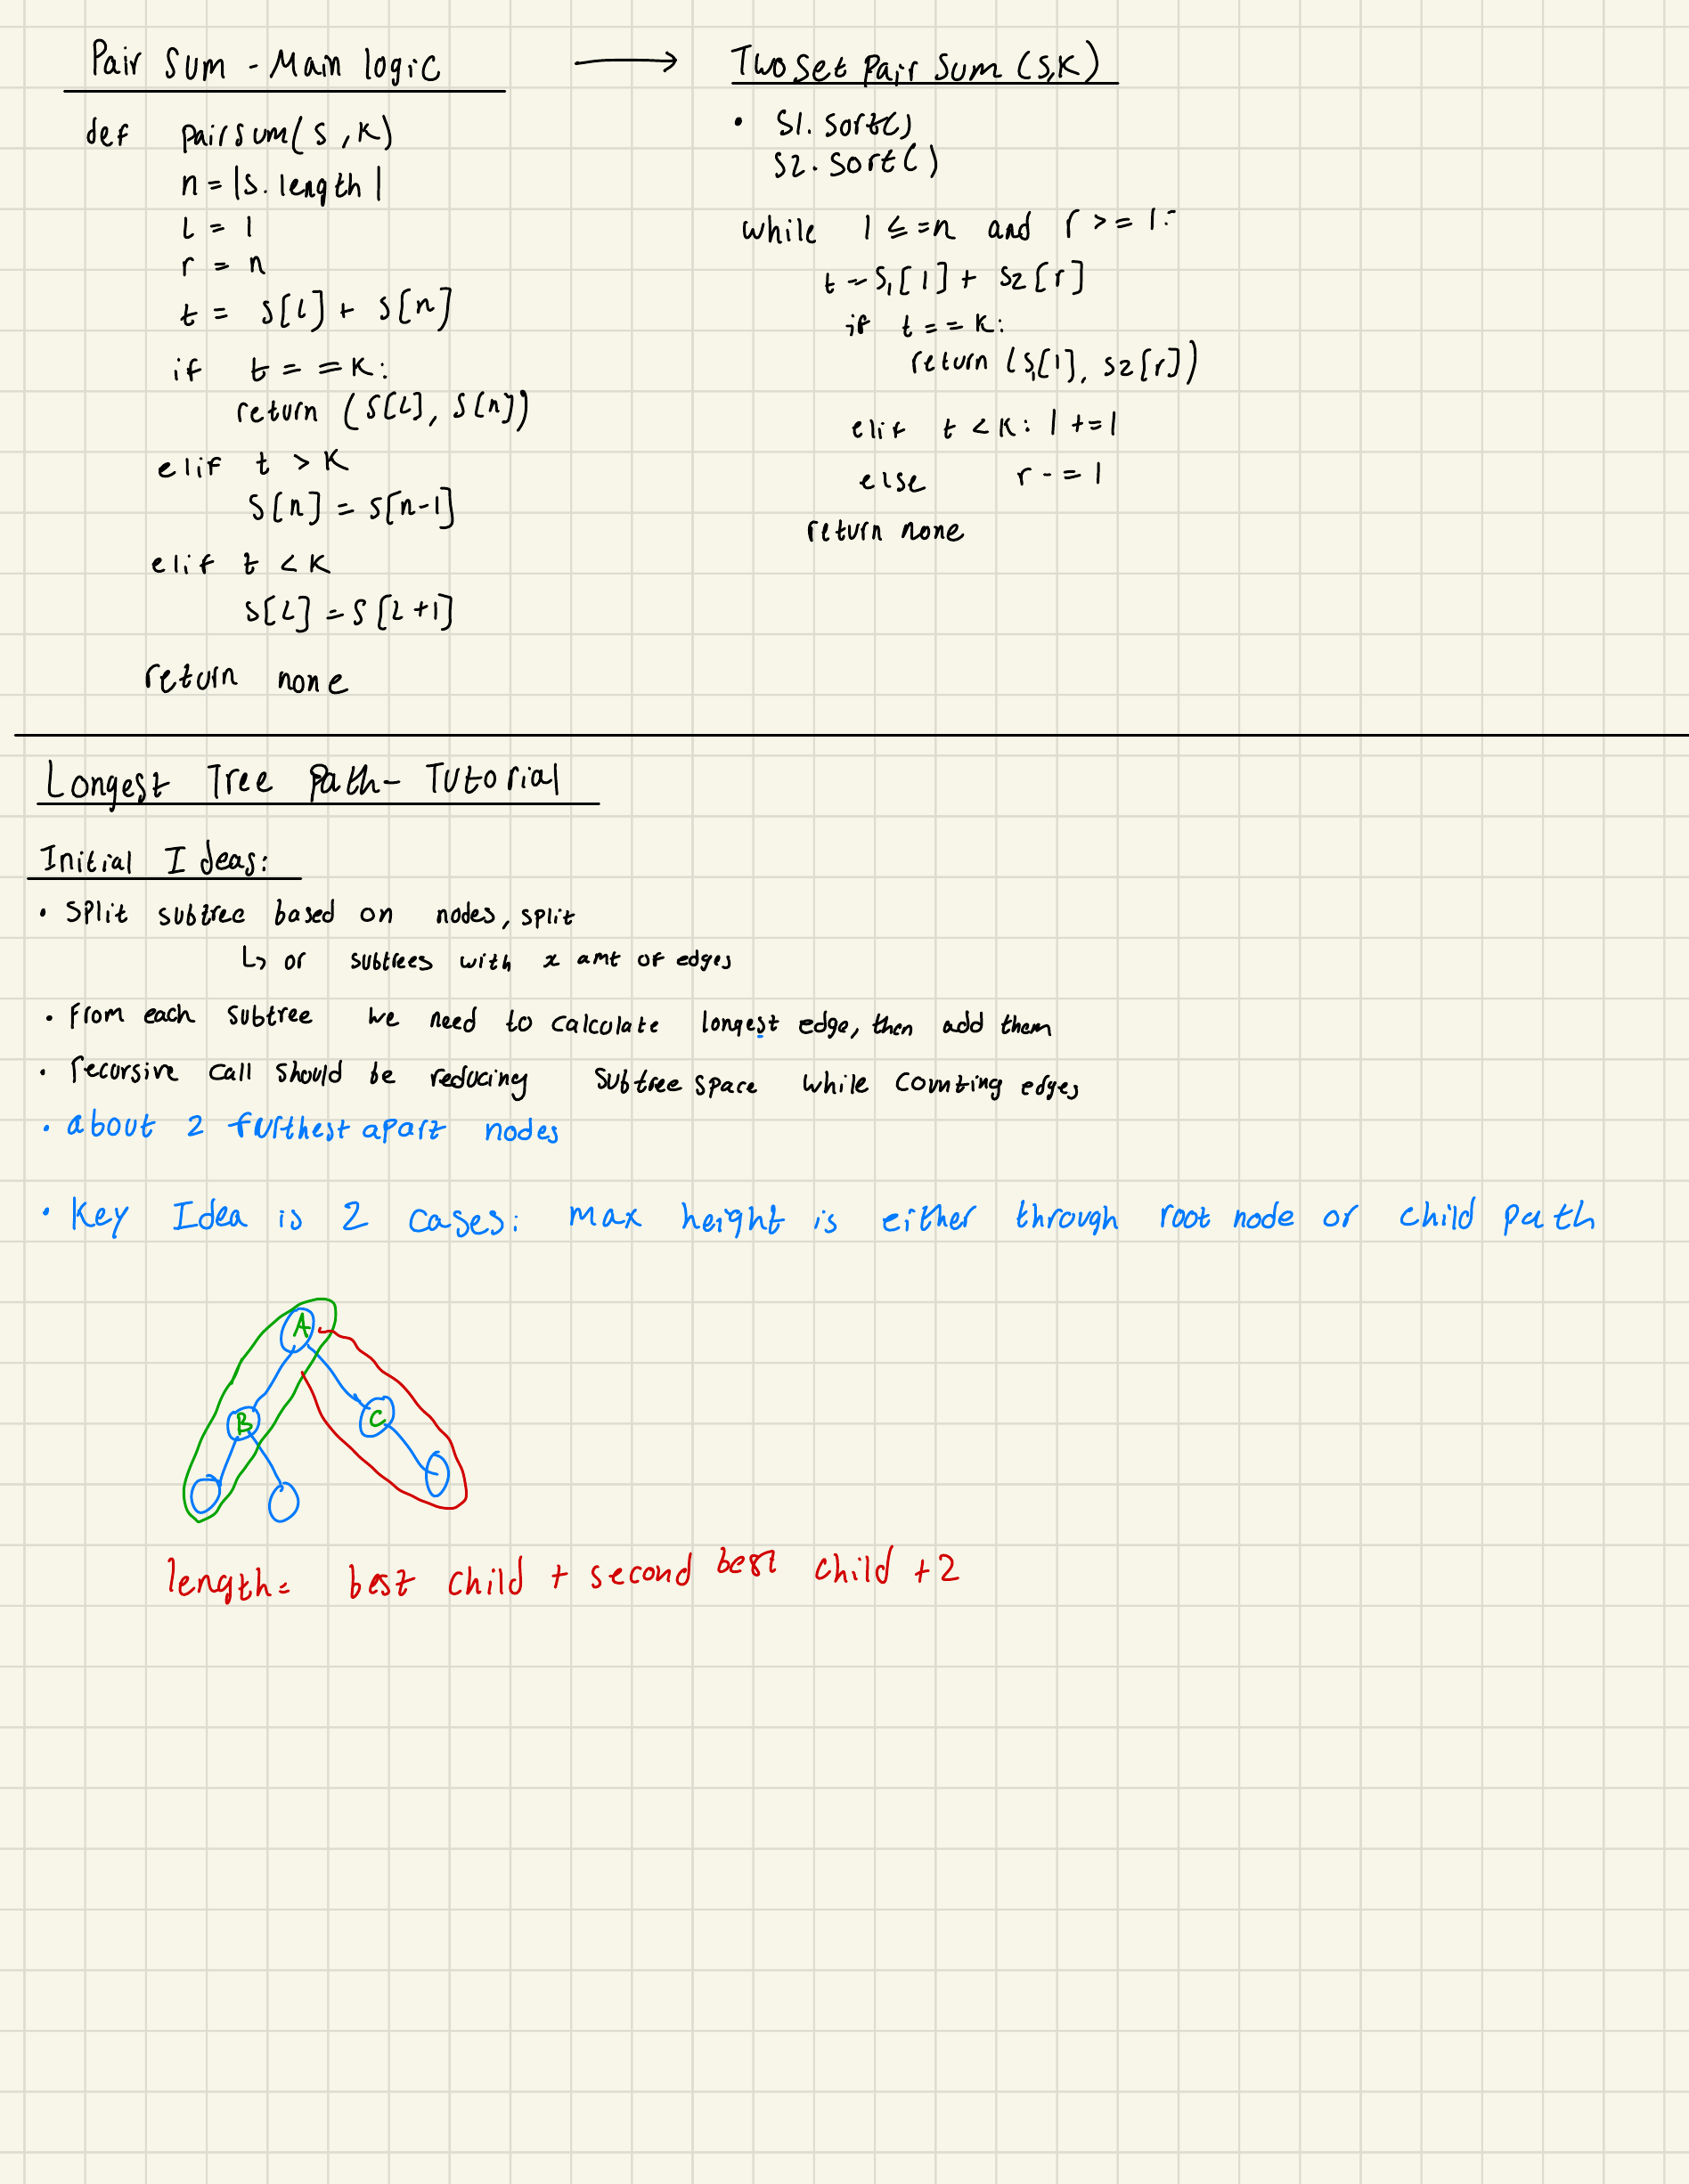 Pair Sum - Main logic
def pairsum(S, K)
n = |S.length|
L = 1
r = n
t = S[L] + S[n]
if t == K:
return (S[L], S[n])
elif t > K
S[n] = S[n-1]
elif t < K
S[L] = S[L+1]
return none
→ Two Set Pair Sum (S,K)
• S1.sort()
S2.sort()
while l ≤= n and r >= 1:
t = S1[l] + S2[r]
if t == K:
return (S1[l], S2[r])
elif t < K: l += 1
else r -= 1
return none
Longest Tree Path - Tutorial
Initial Ideas:
• Split subtree based on nodes, split
↳ or subtrees with x amt of edges
• From each subtree we need to calculate longest edge, then add them
• recursive call should be reducing subtree space while counting edges
• about 2 furthest apart nodes
• Key Idea is 2 cases: max height is either through root node or child path
A
B
C
length = best child + second best child + 2